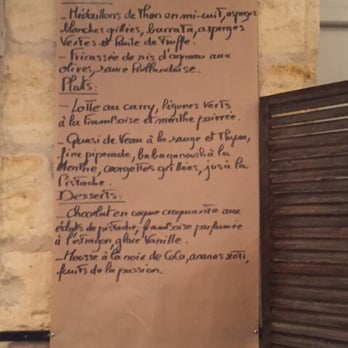 - Médaillons de Thon en mi-cuit, asperges
blanches grillées, burrata, asperges
vertes et huile de truffe.
- Fricassée de ris d'agneau aux
olives, sauce hollandaise.
Plats:
- Lotte au curry, légumes verts
à la framboise et menthe poivrée.
- Quasi de Veau à la sauge et Thym,
fine piperade, babaganoush à la
Menthe, courgettes grillées, jus à la
Pistache.
Desserts:
- Chocolat en coque croquante aux
éclats de pistache, framboise parfumée
à l'estragon, glace Vanille.
- Mousse à la noix de Coco, ananas rôti,
fruits de la passion.